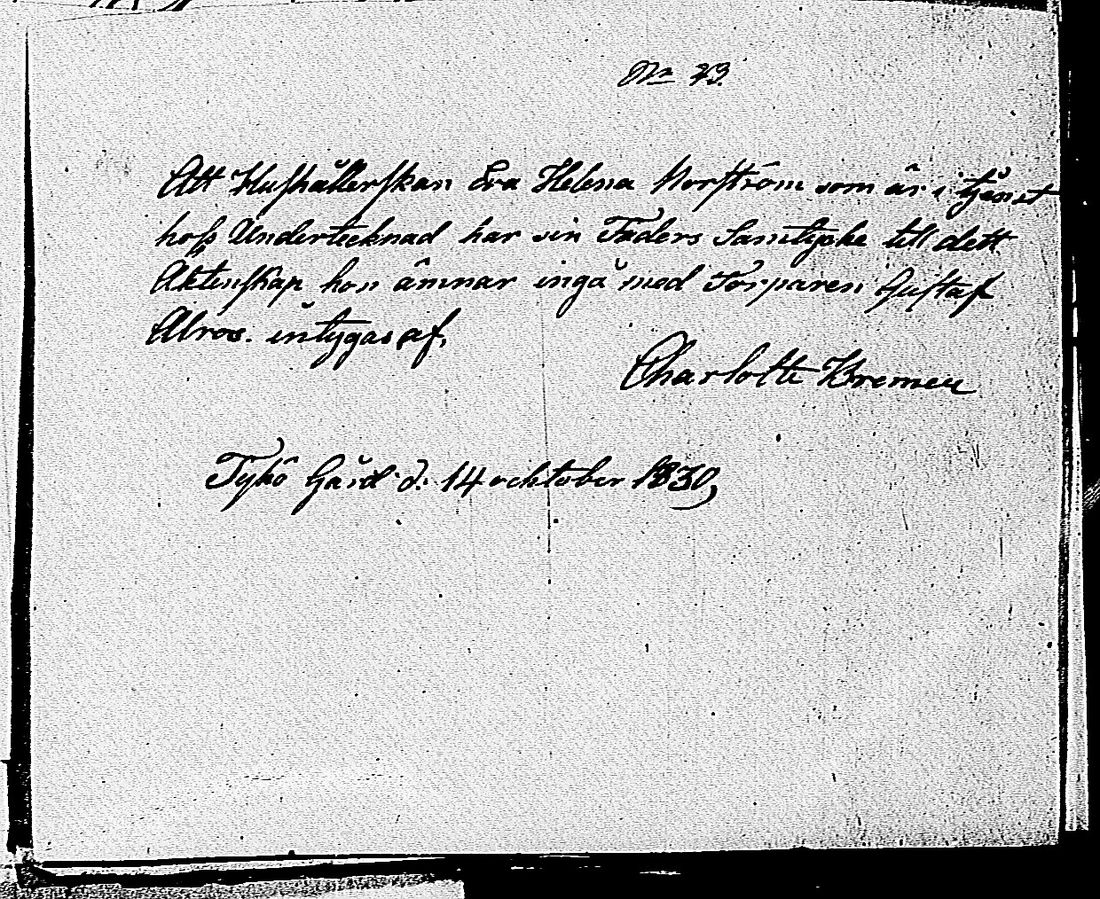 No 23.
Att Hushållerskan Eva Helena Norström som är i tjenst
hoss Undertecknad har sin Faders Samtycke till dett
Äktenskap hon ämnar ingå med Torparen Gustaf
Alros. intygas af,
Charlotte Bremer
Tykö Gård d. 14 ochtober 1830,